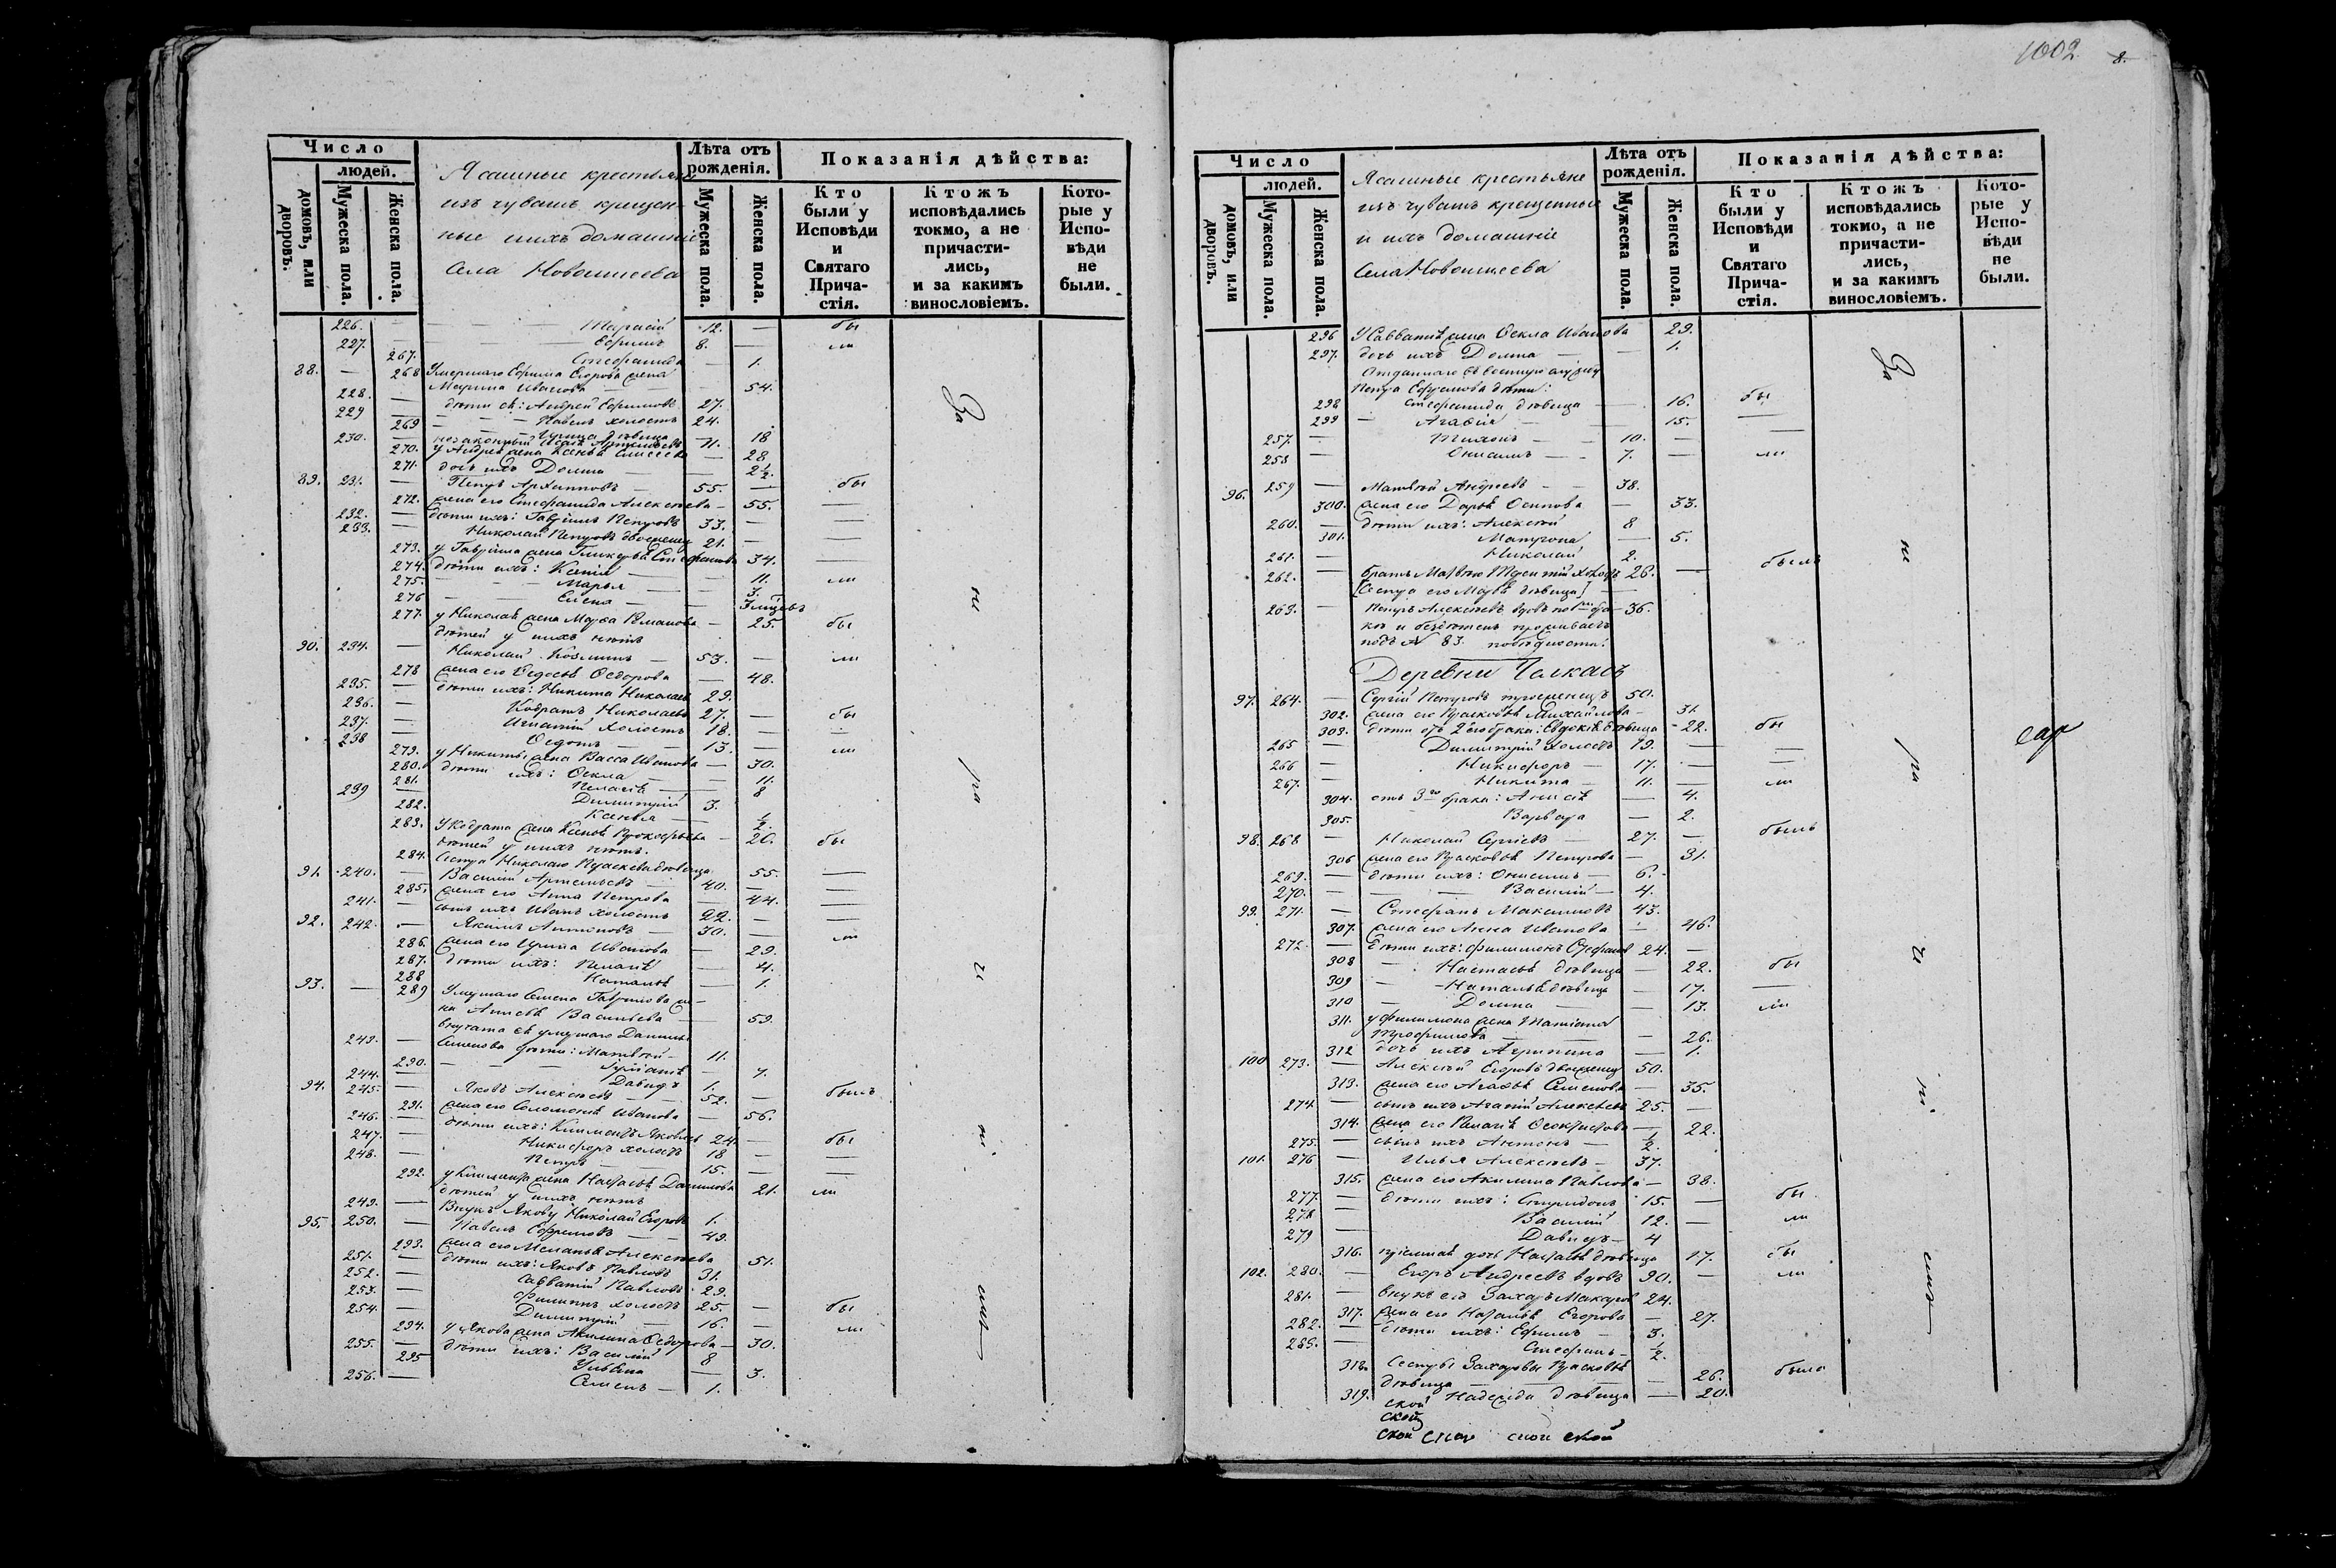 Число
людей.
домовъ, или дворовъ.
Мужеска пола.
Женска пола.
Ясашные крестьяне
изъ чувашъ крещен-
ные и ихъ домашніе
Села Новоишеева
Лѣта отъ рожденія.
Мужеска пола.
Женска пола.
Показанія дѣйства:
Кто были у Исповѣди и Святаго Прича-стія.
Ктожъ исповѣдались токмо, а не причасти-лись, и за какимъ винословіемъ.
Кото-рые у Испо-вѣди не были.
226. — 12. — бы
227. — Ефимъ 8. — ли
267. Стефанида — 1.
88. — 268 Умершаго Ефима Егорова жена
Марина Иванова — 54.
228. — дѣти ея: Андрей Ефимовъ 27.
229 — Павелъ холостъ 24.
269 — дѣвица — 18
230. — незаконный 11.
270. у Андрея жена Ксенья — 28
271. дочь ихъ Домна — 2½.
89. 231. — Петръ Архиповъ — 55. — бы
272. жена его Стефанида Алексѣева — 55. —
232. — дѣти ихъ: Гаврiилъ Петровъ 33. —
233. — Николай Петровъ двоеженец 21. —
273. у Гаврiила жена Гликерья Стефанова 34. —
274. дѣти ихъ: Ксенія — 11. ли
275. — Марья — 3.
276 — Елена —
277. у Николая жена Марѳа Романова — 25. бы
дѣтей у нихъ нѣтъ
90. 234. — Николай Козминъ — 53. — ли
278 жена его Ѳедосья Ѳедорова — 48.
235. — дѣти ихъ: Никита Николаевъ 29.
236. — Кодратъ Николаевъ 27. — бы
237. — Игнатій холостъ 18. —
238 Ѳедотъ — 13. — ли
279. у Никиты жена Васса Иванова — 30.
280. дѣти ихъ: Ѳекла — 11.
281. Пелагея — 8
239 — Димитрій 3.
282. Ксенья — ½.
283. у Кодрата жена Ксенья Прокофьева — 26. бы
дѣтей у нихъ нѣтъ.
284. Сестра Николаю Праскева дѣвица 55. —
91. 240. — Василій Артемьевъ — 40. —
285. жена его Анна Петрова — 44. —
241. — сынъ ихъ Иванъ холостъ 22. —
92. 242. — Якимъ Антоновъ — 30. — ли
286. жена его Ирина Иванова — 29.
287. дѣти ихъ: Пелагея — 4.
288 Наталья — 1.
93. — 289 Умершаго Семена Гаврилова же-
на Анисья Васильева — 59.
внучата ея умершаго Данилы
243. — Семенова дѣти: Матвѣй — 11.
290. — — 7.
244. — Давидъ 1.
94. 245. — Яковъ Алексѣевъ — 52. — былъ
291. жена его Соломонія Иванова — 56.
246. — дѣти ихъ: Климентъ Яковлевъ 24. — бы
247. — Никифоръ холостъ 18 —
248. — Петръ — 15. —
292. у Климента жена Настасья Данилова 21. ли
дѣтей у нихъ нѣтъ
249. — Внукъ Якову Николай Егоровъ 1.
95. 250. — Павелъ Ефремовъ — 49.
293. жена его Меланья Алексѣева 51.
251. — дѣти ихъ: Яковъ Павловъ 31.
252. — Савватій Павловъ 29.
253. — Филиппъ холостъ 25. — бы
254. — Димитрій — 16. — ли
294. у Якова жена Акилина Ѳедорова — 30.
255. — дѣти ихъ: Василій 8
295 Ульяна — 3.
256. — Семенъ — 1.
За не ра чи ні емъ
1002 8.
Число
людей.
домовъ, или дворовъ.
Мужеска пола.
Женска пола.
Ясашные крестьяне
изъ чувашъ крещенные
и ихъ домашніе
Села Новоишеева
Лѣта отъ рожденія.
Мужеска пола.
Женска пола.
Показанія дѣйства:
Кто были у Исповѣди и Святаго Прича-стія.
Ктожъ исповѣдались токмо, а не причасти-лись, и за какимъ винословіемъ.
Кото-рые у Испо-вѣди не были.
296 у Савватія жена Ѳекла Иванова 29.
297. дочь ихъ Домна — 1.
Отданнаго въ военную службу
Петра Ефремова дѣти:
298 Стефанида дѣвица — 16. бы
299 — Агафія — 15. —
257. — Тихонъ — 10. —
258 — Онисимъ — 7. — ли
96. 259 — Матвѣй Андреевъ — 38.
300. жена его Дарья Осипова — 33.
260. — дѣти ихъ: Алексѣй 8
301. Матрона — 5.
261. — Николай 2.
262. — братъ Матвѣю холостъ 26. — былъ
[Сестра его дѣвица]
263. — Петръ Алексѣевъ вдовъ по бра- 36.
кѣ и бездѣтенъ проживаетъ
подъ № 83. по бѣдности.
Деревни Чалкасъ
97. 264. — Сергій Петровъ троеженецъ 50.
302. жена его Прасковья Михайлова — 31.
303. дѣти отъ 2го брака: Евдокія дѣвица — 22. бы
265 — Димитрій холостъ 19. —
266 — Никифоръ — 17. —
267. — Никита — 11. — ли
304. отъ 3го брака: Анисья — 4.
305. Варвара — 2.
98. 268 — Николай Сергіевъ — 27. — былъ
306 жена его Прасковья Петрова — 31.
269. — дѣти ихъ: Онисимъ — 6.
270. — Василій — 4.
99. 271. — Стефанъ Максимовъ 43.
307. жена его Анна Иванова — 46.
272. — дѣти ихъ: Филимонъ Стефановъ 24. —
308 — Настасья дѣвица — 22. бы
309 — Наталья дѣвица — 17. —
310 — Домна — 13. ли
311. у Филимона жена Татіана
Трофимова — 26.
312 дочь ихъ Агрипина — 1.
100 273. — Алексѣй Егоровъ двоеженец 50.
313. жена его Агафья Семенова — 35.
274 — сынъ ихъ Алексѣевъ 25. —
314. жена его Пелагея — 22.
275. — сынъ ихъ Антонъ — ½.
101. 276 — Илья Алексѣевъ — 37.
315. жена его Акилина Павлова — 38.
277. — дѣти ихъ: Спиридонъ 15. — бы
278 — Василій 12. — ли
279 — Давидъ — 4
316. пріемная дочь Настасья дѣвица 17. бы
102. 280. — Егоръ Андреевъ вдовъ 90. — ли
281. — внукъ его Захаръ Макаровъ 24.
317. жена его Наталья Егорова — 27.
282. — дѣти ихъ: Ефимъ — 3.
283. — Стефанъ — ½.
318. Сестры Захаровы Прасковья
дѣвица — 26. была
319. Надежда дѣвица — 20.
За не ра чи ні емъ
ской
ской
ской ской ской